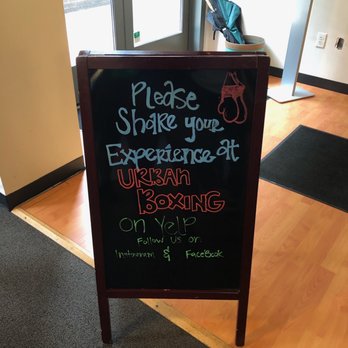 Please
Share your
Experience at
URBAN
BOXING
On Yelp
Follow Us on
Instagram & FaceBook